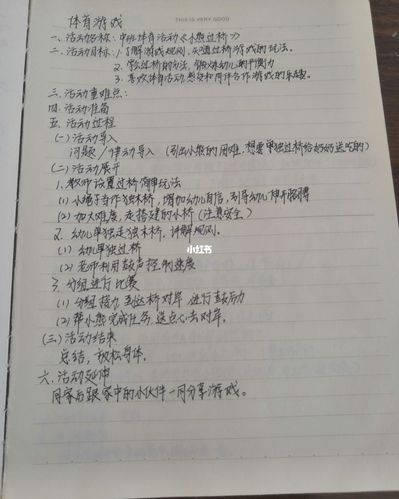 THIS IS VERY GOOD
体育游戏
一、活动名称：中班体育活动《小熊过桥》
二、活动目标：1.了解游戏规则，知道过桥游戏的玩法。
2.学过桥的方法，锻炼幼儿的平衡力
3.喜欢体育活动，感受和同伴合作游戏的乐趣。
三、活动重难点：
四、活动准备
五、活动过程
(一)活动导入
问题/律动导入（引出小熊的困难，想要单独过桥给奶奶送吃的）
(二)活动展开
1.教师设置过桥简单玩法
(1)小绳子当作独木桥，增加幼儿自信，引导幼儿伸开胳膊
(2)加大难度，走搭建的小桥（注意安全）
2.幼儿单独走独木桥，讲解规则。
(1)幼儿单独过桥
小红书
(2)老师利用鼓声控制速度
3.分组进行比赛
(1)分组接力，到达桥对岸，进行鼓励
(2)帮小熊完成任务，送点心去对岸。
(三)活动结束
总结，放松身体。
六、活动延伸
回家后跟家中的小伙伴一同分享游戏。